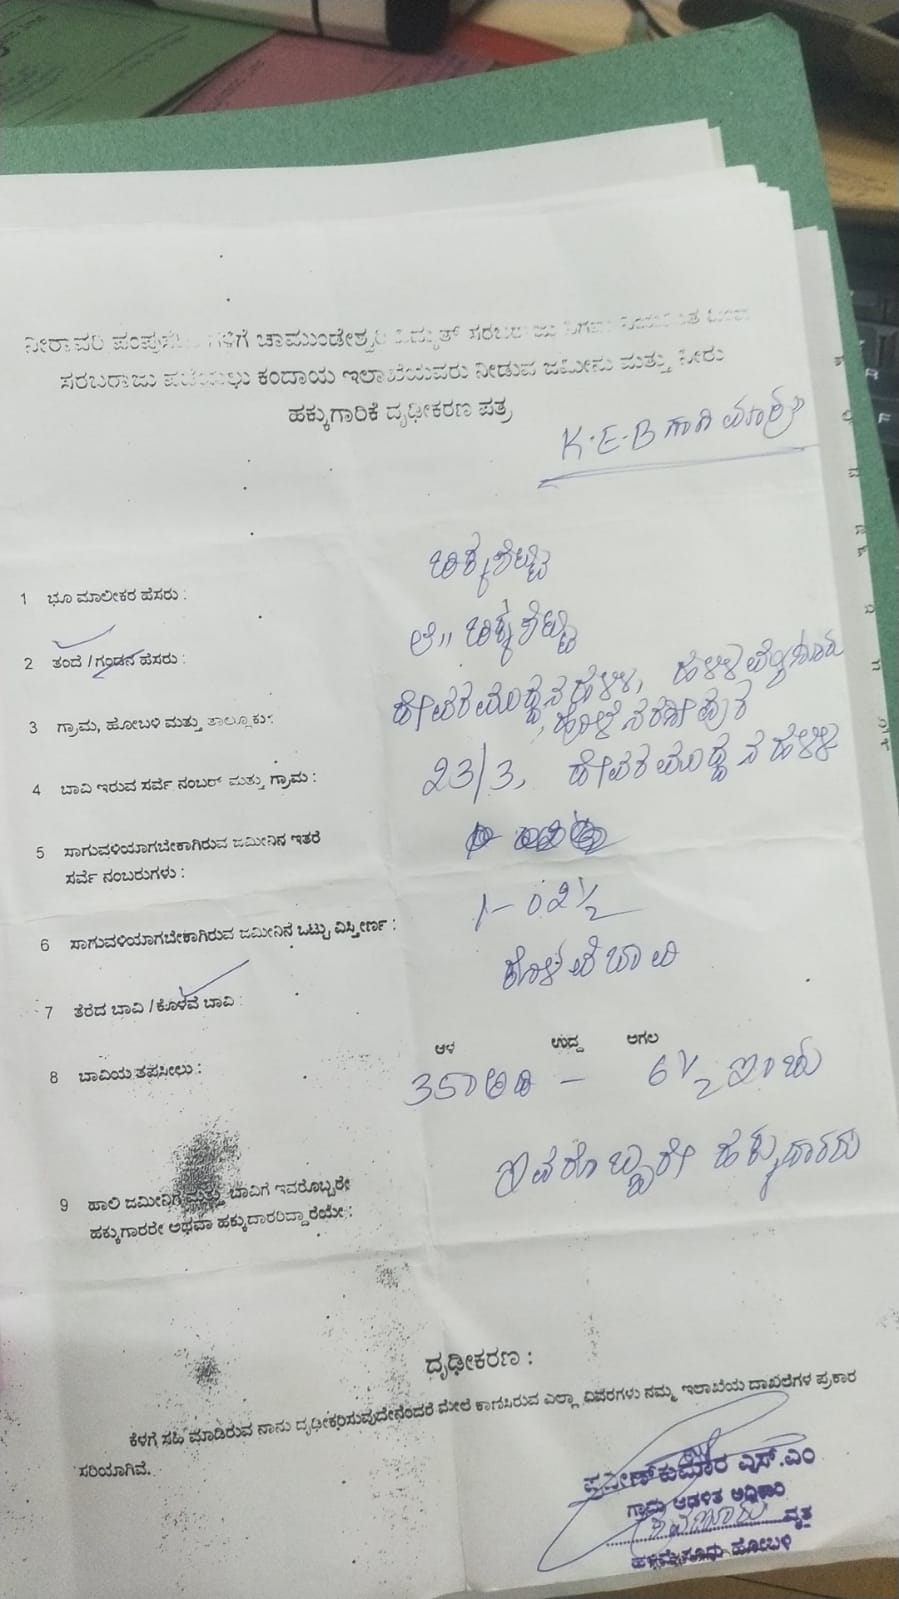 ನೀರಾವರಿ ಚಾಮುಂಡೇಶ್ವರಿ ವಿದ್ಯುತ್ ಸರಬರಾಜು
ಸರಬರಾಜು ಪಡೆಯಲು ಕಂದಾಯ ಇಲಾಖೆಯವರು ನೀಡುವ ಜಮೀನು ಮತ್ತು ನೀರು
ಹಕ್ಕುಗಾರಿಕೆ ದೃಢೀಕರಣ ಪತ್ರ
K.E.B ಗಾಗಿ ಮಾತ್ರ
1 ಭೂ ಮಾಲೀಕರ ಹೆಸರು : ಚಿಕ್ಕಶೆಟ್ಟಿ
2 ತಂದೆ / ಗಂಡನ ಹೆಸರು :
3 ಗ್ರಾಮ, ಹೋಬಳಿ ಮತ್ತು ತಾಲ್ಲೂಕು :
ಹೊಳೆನರಸೀಪುರ
4 ಬಾವಿ ಇರುವ ಸರ್ವೆ ನಂಬರ್ ಮತ್ತು ಗ್ರಾಮ : 23/3,
5 ಸಾಗುವಳಿಯಾಗಬೇಕಾಗಿರುವ ಜಮೀನಿನ ಇತರೆ
ಸರ್ವೆ ನಂಬರುಗಳು :
6 ಸಾಗುವಳಿಯಾಗಬೇಕಾಗಿರುವ ಜಮೀನಿನ ಒಟ್ಟು ವಿಸ್ತೀರ್ಣ : 1-02½
7 ತೆರೆದ ಬಾವಿ / ಕೊಳವೆ ಬಾವಿ : ಕೊಳವೆ ಬಾವಿ
ಆಳ ಉದ್ದ ಅಗಲ
8 ಬಾವಿಯ ತಪಸೀಲು : 350 ಅಡಿ – 6½ ಇಂಚು
9 ಹಾಲಿ ಜಮೀನಿಗೆ ಮತ್ತು ಬಾವಿಗೆ ಇವರೊಬ್ಬರೇ ಇವರೊಬ್ಬರೇ ಹಕ್ಕುದಾರರು
ಹಕ್ಕುಗಾರರೇ ಅಥವಾ ಹಕ್ಕುದಾರರಿದ್ದಾರೆಯೇ :
ದೃಢೀಕರಣ :
ಕೆಳಗೆ ಸಹಿ ಮಾಡಿರುವ ನಾನು ದೃಢೀಕರಿಸುವುದೇನೆಂದರೆ ಮೇಲೆ ಕಾಣಿಸಿರುವ ಎಲ್ಲಾ ವಿವರಗಳು ನಮ್ಮ ಇಲಾಖೆಯ ದಾಖಲೆಗಳ ಪ್ರಕಾರ
ಸರಿಯಾಗಿವೆ.
ಪ್ರವೀಣ್‌ಕುಮಾರ ಎಸ್.ಎಂ
ಗ್ರಾಮ ಆಡಳಿತ ಅಧಿಕಾರಿ
ವೃತ್ತ
ಹೋಬಳಿ